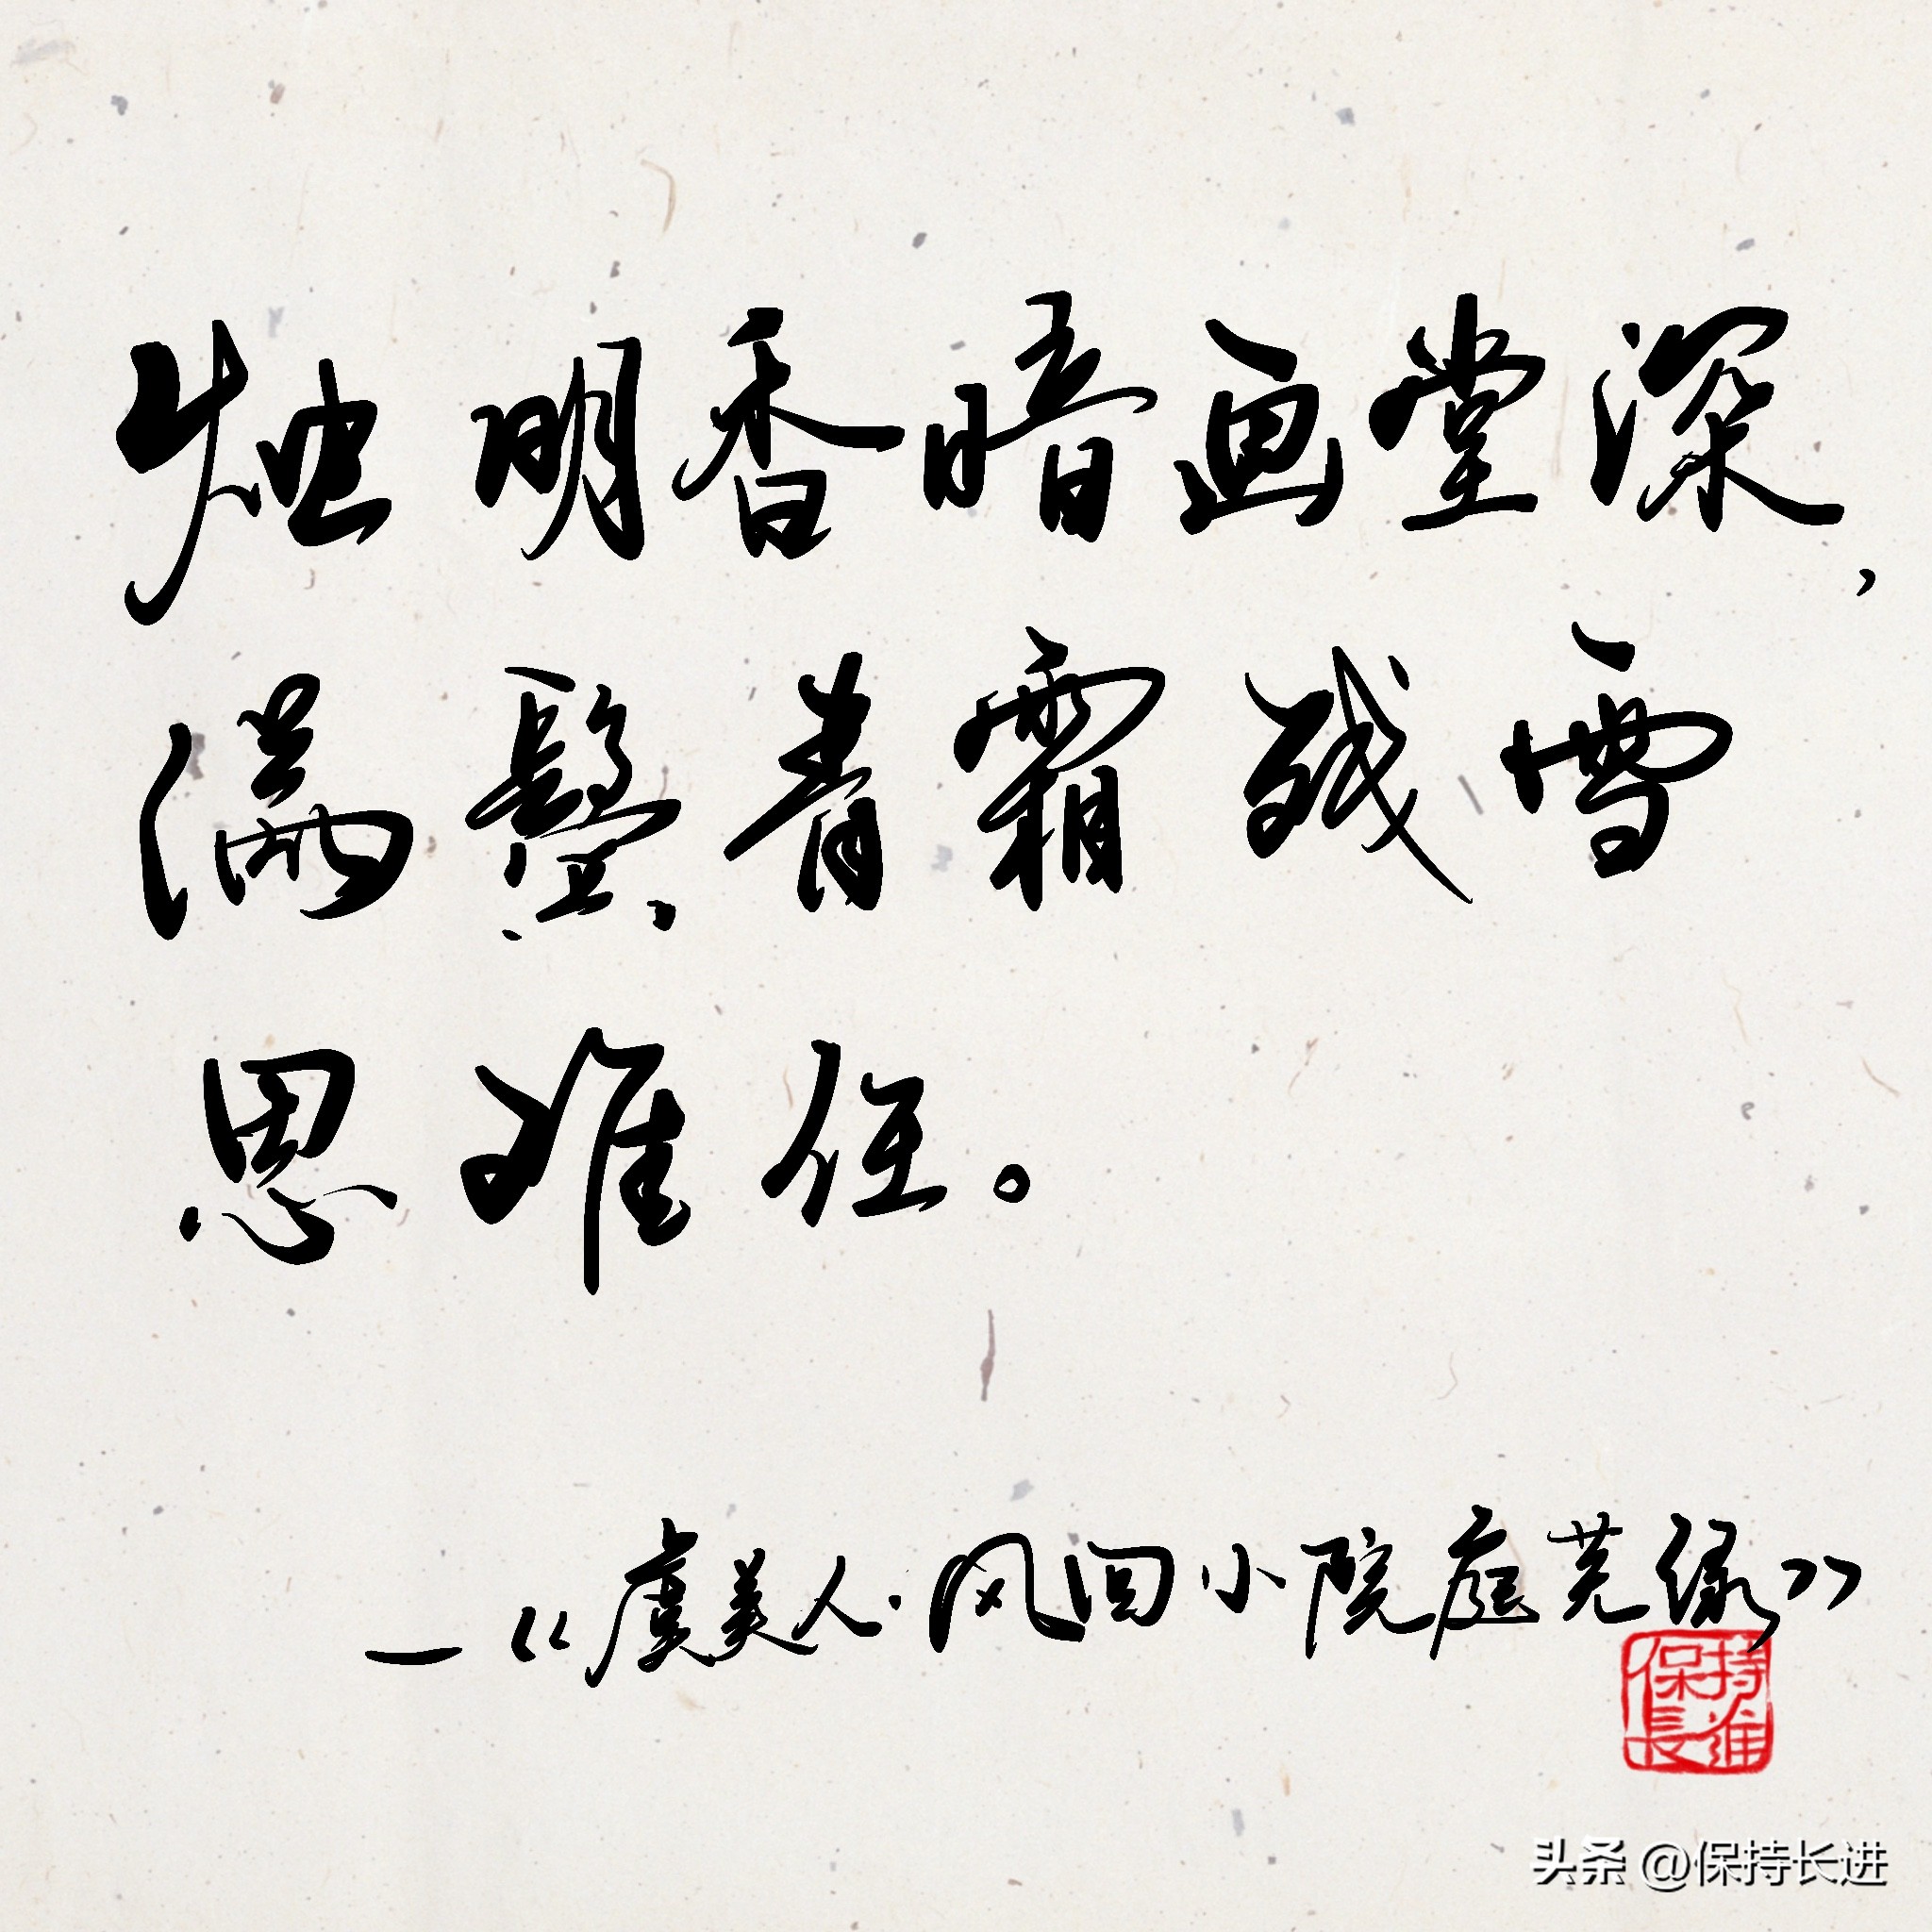 烛明香暗画堂深，
满鬓青霜残雪
思难任。
—《虞美人·风回小院庭芜绿》
保持
长进
头条 @保持长进